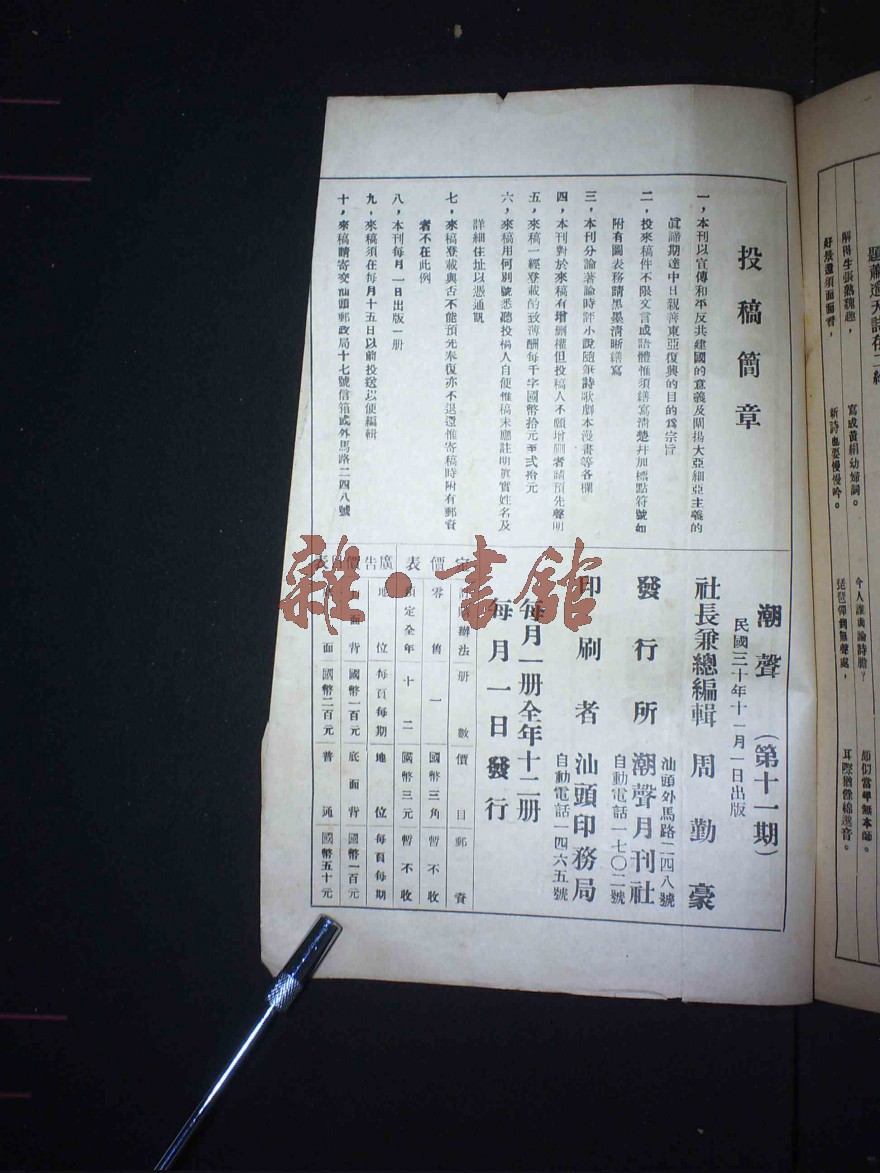 題蕭遙天詩存二絕
解得生張熟魏趣，
寫成黃絹幼婦詞。
今人誰與論詩膽？
頗似當年無本師。
好景還須面面看，
新詩也要慢慢吟。
琵琶彈到無聲處，
耳際猶餘綿邈音。
投稿簡章
一，本刊以宣傳和平反共建國的意義及闡揚大亞細亞主義的
眞諦期達中日親善東亞復興的目的爲宗旨
二，投來稿件不限文言或語體惟須繕寫清楚幷加標點符號如
附有圖表務請黑墨清晰繕寫
三，本刊分論著論時評小說隨筆詩歌劇本漫畫等各欄
四，本刊對於來稿有增刪權但投稿人不願增刪者請預先聲明
五，來稿一經登載酌致薄酬每千字國幣拾元至弍拾元
六，來稿用何別號悉聽投稿人自便惟稿末應註明眞實姓名及
詳細住址以憑通訊
七，來稿登載與否不能預先奉復亦不退還惟寄稿時附有郵資
者不在此例
八，本刊每月一日出版一册
九，來稿須在每月十五日以前投送以便編輯
十，來稿請寄交汕頭郵政局十七號信箱或外馬路二四八號
潮聲（第十一期）
民國三十年十一月一日出版
社長兼總編輯 周勤豪
發行所 潮聲月刊社
汕頭外馬路二四八號
自動電話一七〇二號
印刷者 汕頭印務局
自動電話一四六五號
每月一册全年十二册
每月一日發行
定價表
辦法 册數 價目 郵費
零售 一 國幣三角 暫不收
預定全年 十二 國幣三元 暫不收
廣告價目表
地位 每頁每期 地位 每頁每期
面背 國幣一百元 底面背 國幣一百元
面 國幣二百元 普通 國幣五十元
雜·書館